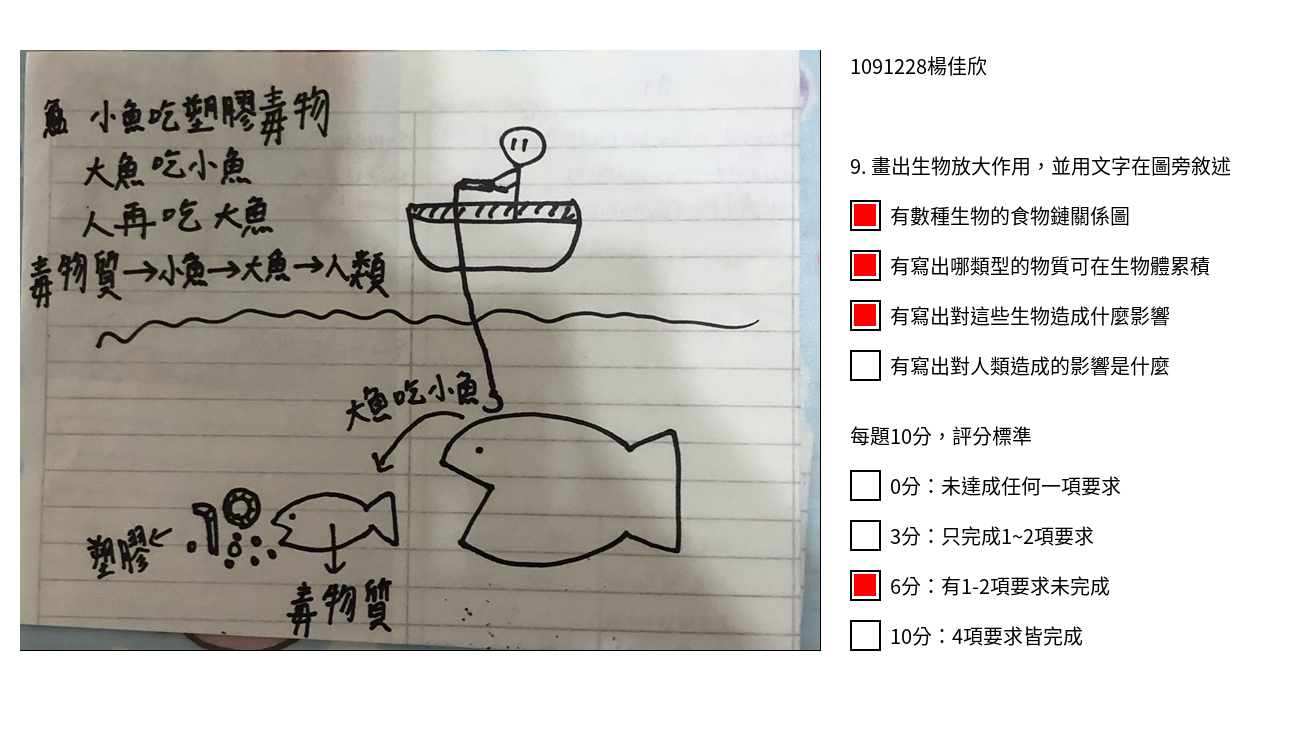 小魚吃塑膠毒物
大魚吃小魚
人再吃大魚
毒物質→小魚→大魚→人類
大魚吃小魚
塑膠
毒物質
1091228楊佳欣
9. 畫出生物放大作用，並用文字在圖旁敘述
有數種生物的食物鏈關係圖
有寫出哪類型的物質可在生物體累積
有寫出對這些生物造成什麼影響
有寫出對人類造成的影響是什麼
每題10分，評分標準
0分：未達成任何一項要求
3分：只完成1~2項要求
6分：有1-2項要求未完成
10分：4項要求皆完成